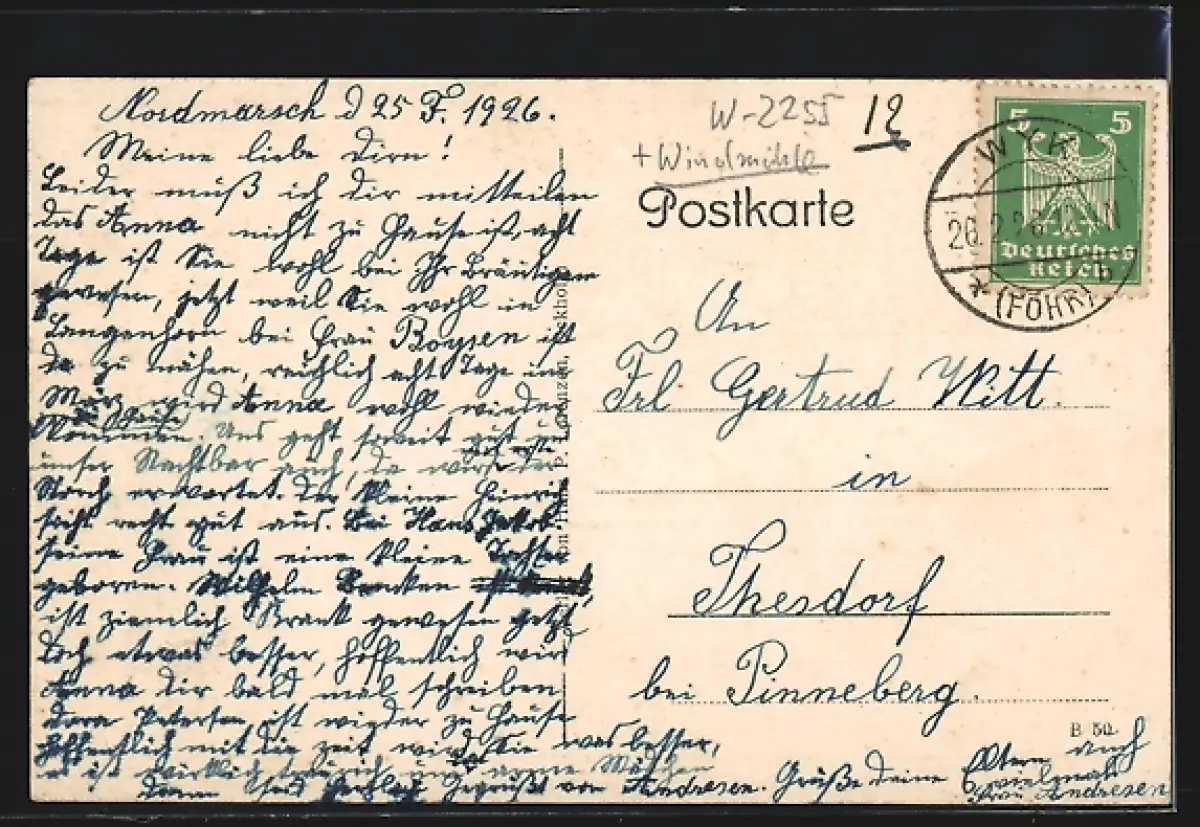 Nordmarsch d 25 F. 1926.
Meine liebe Dirn!
Leider muß ich dir mitteilen
das Anna nicht zu Hause ist, acht
Tage ist Sie wohl bei Ihr Bräutigam
gewesen, jetzt weil Sie wohl in
Langenhorn bei Frau Boysen ist
da zu nähen, reichlich acht Tage im
März wird Anna wohl wieder
zu Hause
kommen. Uns geht soweit gut und
unser Nachtbar auch, da wurde der erste
Storch erwartet. Der kleine Heinrich
sieht recht gut aus. Bei Hans Jakob
seine Frau ist eine kleine Tochter
geboren. Wilhelm
ist ziemlich Krank gewesen jetzt
doch etwas besser, hoffentlich wird
Anna dir bald mal schreiben
Dora Petersen ist wieder zu Hause
hoffentlich mit die Zeit wird Sie was besser,
es ist wirklich traurich und arme Mädchen
Gegrüßt von Andresen. Grüße deine Eltern auch
vielmal
Frau Andresen
W-2255
12
+ Windmühle
Postkarte
5 5
Deutsches
Reich
WYK
26.2.26.
* (FÖHR)
An
Frl Gertrud Witt.
in
Thesdorf
bei Pinneberg.
B 50.